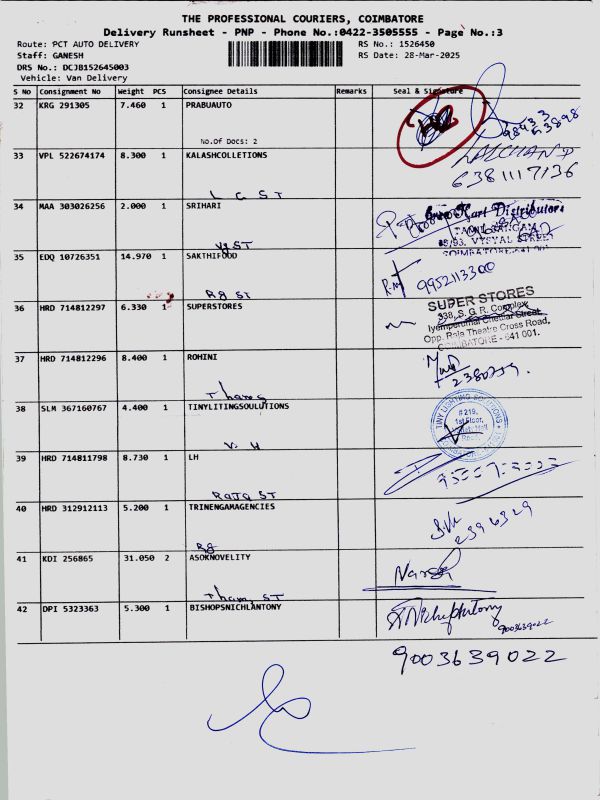 THE PROFESSIONAL COURIERS, COIMBATORE
Delivery Runsheet - PNP - Phone No.:0422-3505555 - Page No.:3
Route: PCT AUTO DELIVERY
RS No.: 1526450
Staff: GANESH
RS Date: 28-Mar-2025
DRS No.: DCJB152645003
Vehicle: Van Delivery
S No Consignment No Weight PCS Consignee Details Remarks Seal & Signature
32 KRG 291305 7.460 1 PRABUAUTO
No.Of Docs: 2
33 VPL 522674174 8.300 1 KALASHCOLLETIONS
LALCHAND
6381117136
L G ST
34 MAA 303026256 2.000 1 SRIHARI
Kart Distributors
VYSYAL STREET
COIMBATORE-641 001
35 EDQ 10726351 14.970 1 SAKTHIFOOD
9952113300
Rg ST
36 HRD 714812297 6.330 1 SUPERSTORES
SUPER STORES
338, S. G. R. Complex
Iyemperumal Chettiar Street,
Opp. Raja Theatre Cross Road,
COIMBATORE - 641 001.
37 HRD 714812296 8.400 1 ROHINI
2380259
38 SLM 367160767 4.400 1 TINYLITINGSOULUTIONS
TINY LIGHTING SOLUTIONS
#219,
1st Floor,
39 HRD 714811798 8.730 1 LH
Raja ST
40 HRD 312912113 5.200 1 TRINENGAMAGENCIES
2396329
Rg
41 KDI 256865 31.050 2 ASOKNOVELITY
Naresh
ST
42 DPI 5323363 5.300 1 BISHOPSNICHLANTONY
9003639022
9003639022